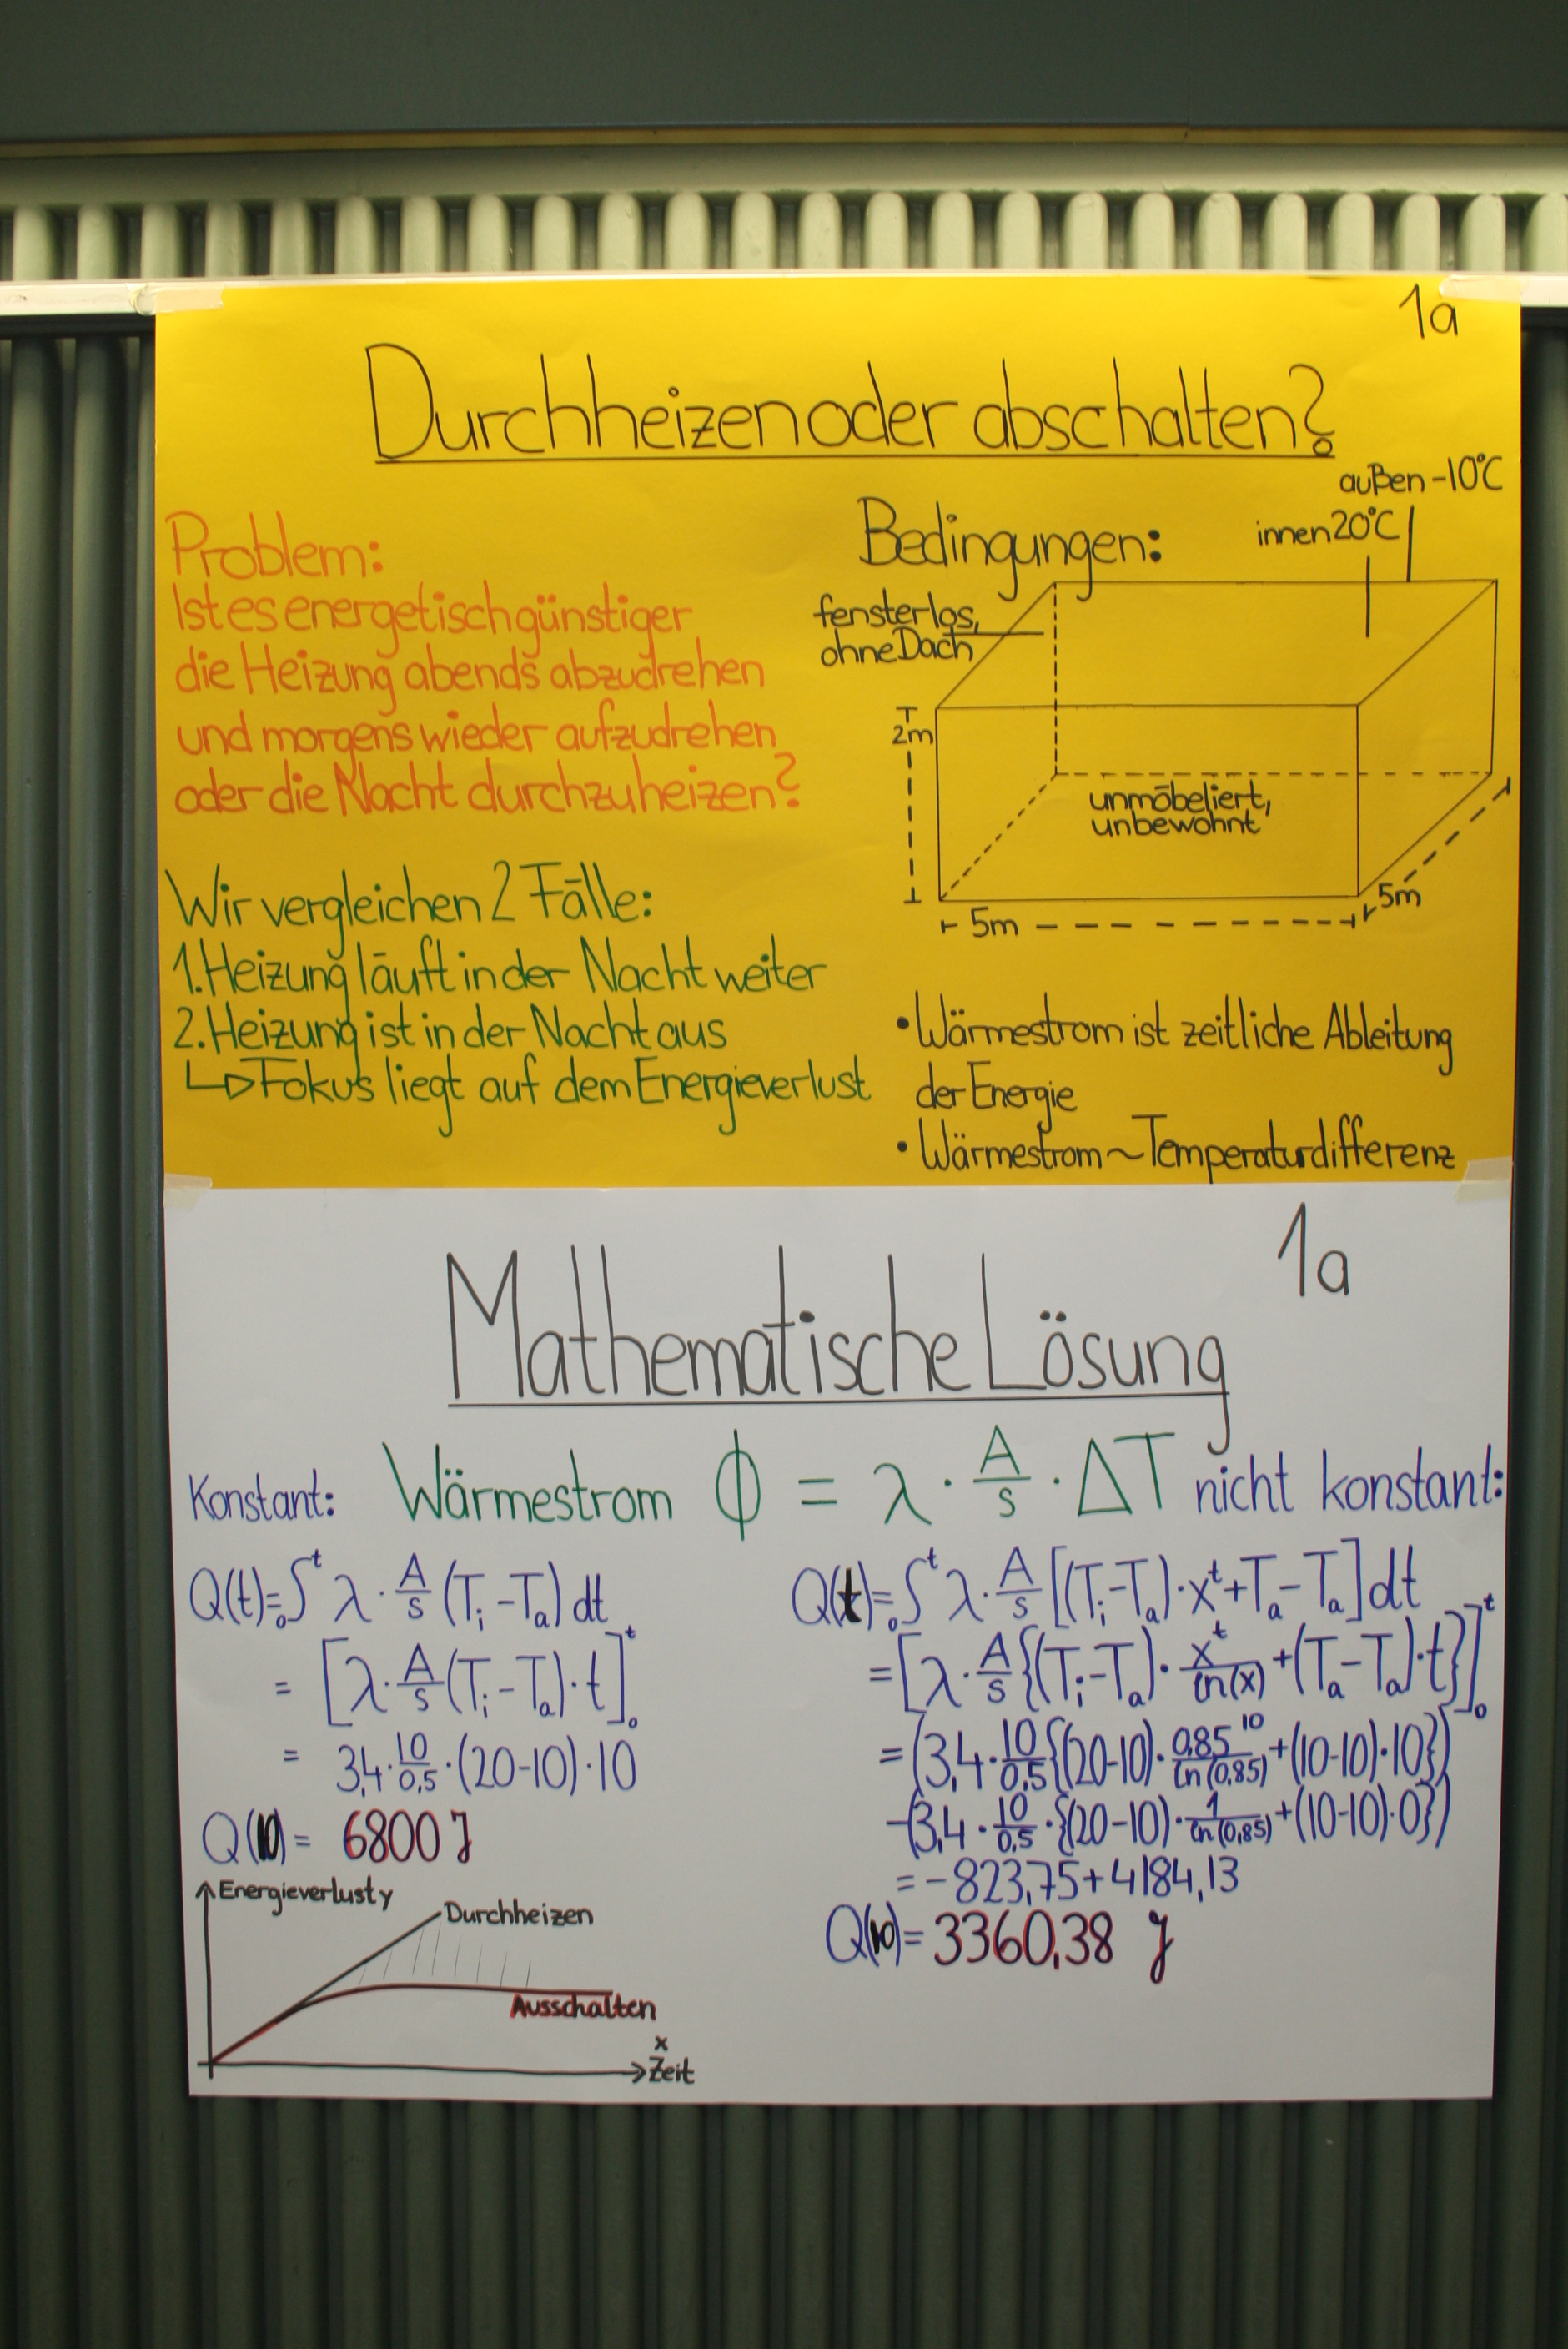 1a
Durchheizen oder abschalten?
Problem:
Ist es energetisch günstiger
die Heizung abends abzudrehen
und morgens wieder aufzudrehen
oder die Nacht durchzuheizen?
Wir vergleichen 2 Fälle:
1. Heizung läuft in der Nacht weiter
2. Heizung ist in der Nacht aus
↳ Fokus liegt auf dem Energieverlust
Bedingungen:
außen -10°C
innen 20°C
fensterlos,
ohne Dach
2m
unmöbeliert,
unbewohnt
5m
5m
• Wärmestrom ist zeitliche Ableitung
der Energie
• Wärmestrom ~ Temperaturdifferenz
1a
Mathematische Lösung
Wärmestrom Φ = λ · A/s · ΔT
Konstant:
Q(t) = ₀∫ᵗ λ · A/s (Tᵢ - Tₐ) dt
= [λ · A/s (Tᵢ - Tₐ) · t]₀ᵗ
= 3,4 · 10/0,5 · (20-10) · 10
Q(10) = 6800 J
Energieverlust y
Durchheizen
Ausschalten
x
Zeit
nicht konstant:
Q(t) = ₀∫ᵗ λ · A/s [(Tᵢ - Tₐ) · xᵗ + Tₐ - Tₐ] dt
= [λ · A/s {(Tᵢ - Tₐ) · xᵗ/ln(x) + (Tₐ - Tₐ) · t}]₀ᵗ
= (3,4 · 10/0,5 {(20-10) · 0,85¹⁰/ln(0,85) + (10-10) · 10})
- (3,4 · 10/0,5 · {(20-10) · 1/ln(0,85) + (10-10) · 0})
= -823,75 + 4184,13
Q(10) = 3360,38 J